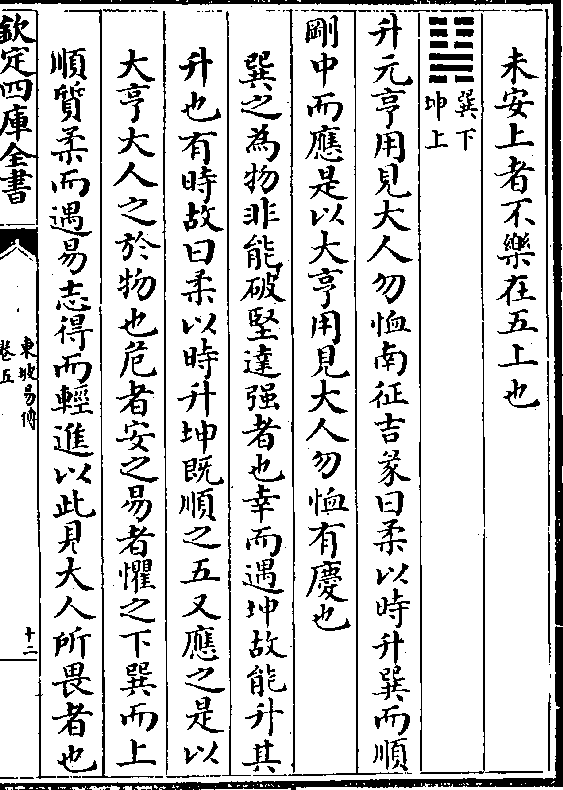 未安上者不樂在五上也
䷭
巽下
坤上
升元亨用見大人勿恤南征吉彖曰柔以時升巽而順
剛中而應是以大亨用見大人勿恤有慶也
巽之為物非能破堅達强者也幸而遇坤故能升其
升也有時故曰柔以時升坤既順之五又應之是以
大亨大人之於物也危者安之易者懼之下巽而上
順質柔而遇易志得而輕進以此見大人所畏者也
欽定四庫全書
東坡易傳
卷五
十二